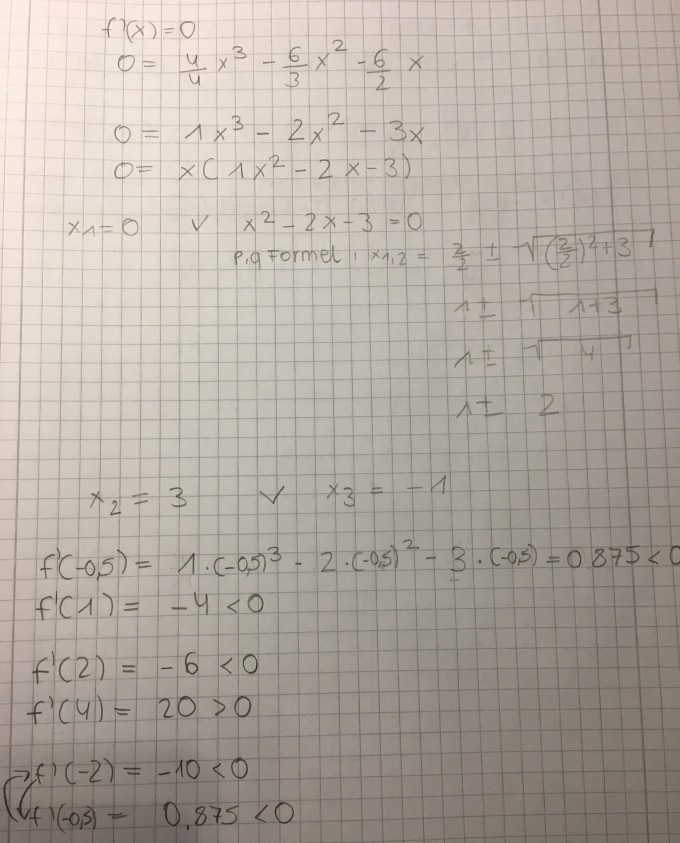 f'(x) = 0
0 = 4/4 x³ - 6/3 x² - 6/2 x
0 = 1x³ - 2x² - 3x
0 = x( 1x² - 2x - 3)
x1 = 0 ∨ x² - 2x - 3 = 0
p,q Formel: x1,2 = 2/2 ± √((2/2)² + 3)
1 ± √(1+3)
1 ± √4
1 ± 2
x₂ = 3 ∨ x₃ = -1
f'(-0,5) = 1·(-0,5)³ - 2·(-0,5)² - 3·(-0,5) = 0,875 < 0
f'(1) = -4 < 0
f'(2) = -6 < 0
f'(4) = 20 > 0
f'(-2) = -10 < 0
f'(-0,5) = 0,875 < 0